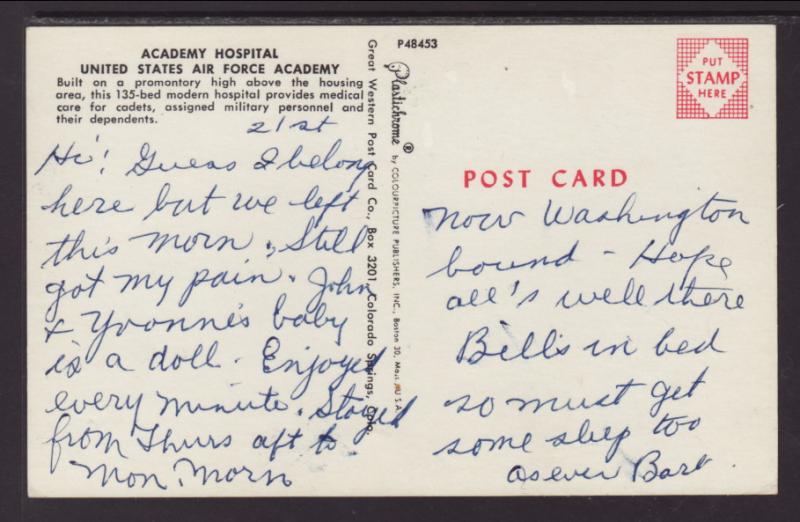 ACADEMY HOSPITAL
UNITED STATES AIR FORCE ACADEMY
Built on a promontory high above the housing
area, this 135-bed modern hospital provides medical
care for cadets, assigned military personnel and
their dependents.
21st
Hi! Guess I belong
here but we left
this morn. Still
got my pain. John
& Yvonne's baby
is a doll. Enjoyed
every minute. Stayed
from Thurs aft to
Mon. Morn
Great Western Post Card Co., Box 3201, Colorado Springs, Colo.
P48453
Plastichrome ®
by COLOURPICTURE PUBLISHERS, INC., Boston 30, Mass., U.S.A.
PUT
STAMP
HERE
POST CARD
now Washington
bound - Hope
all's well there
Bill's in bed
so must get
some sleep too
as ever Bart